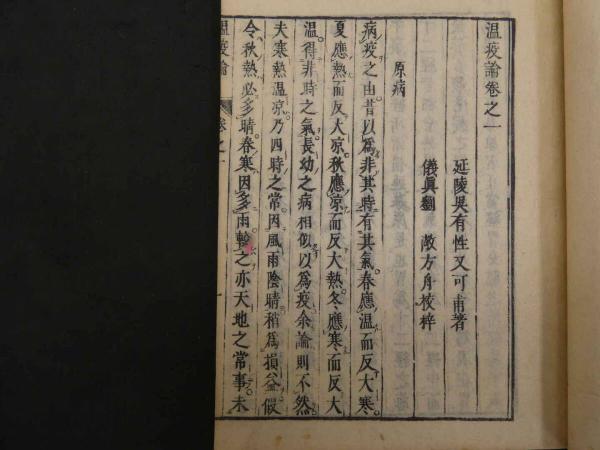 温疫論卷之一
延陵吳有性又可甫著
儀眞劉敞方舟校梓
原病
病疫之由昔以爲非其時有其氣春應温而反大寒
夏應熱而反大凉秋應凉而反大熱冬應寒而反大
温得非時之氣長幼之病相似以爲疫余論則不然
夫寒熱温凉乃四時之常因風雨陰晴稍爲損益假
令秋熱必多晴春寒因多雨較之亦天地之常事未
温疫論 卷之一